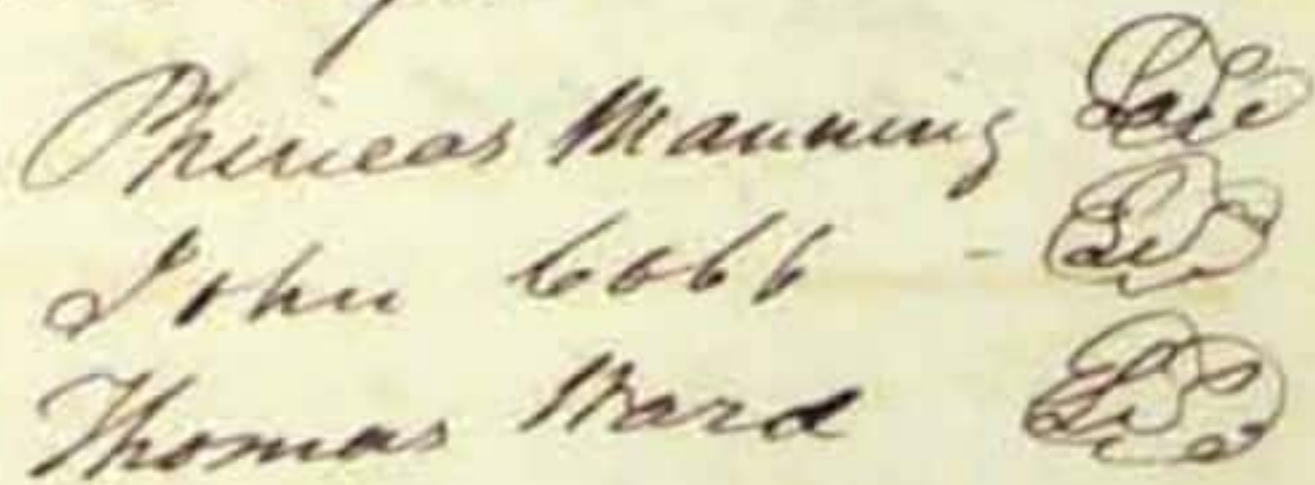 Phineas Manning
John Cobb -
Thomas Ward